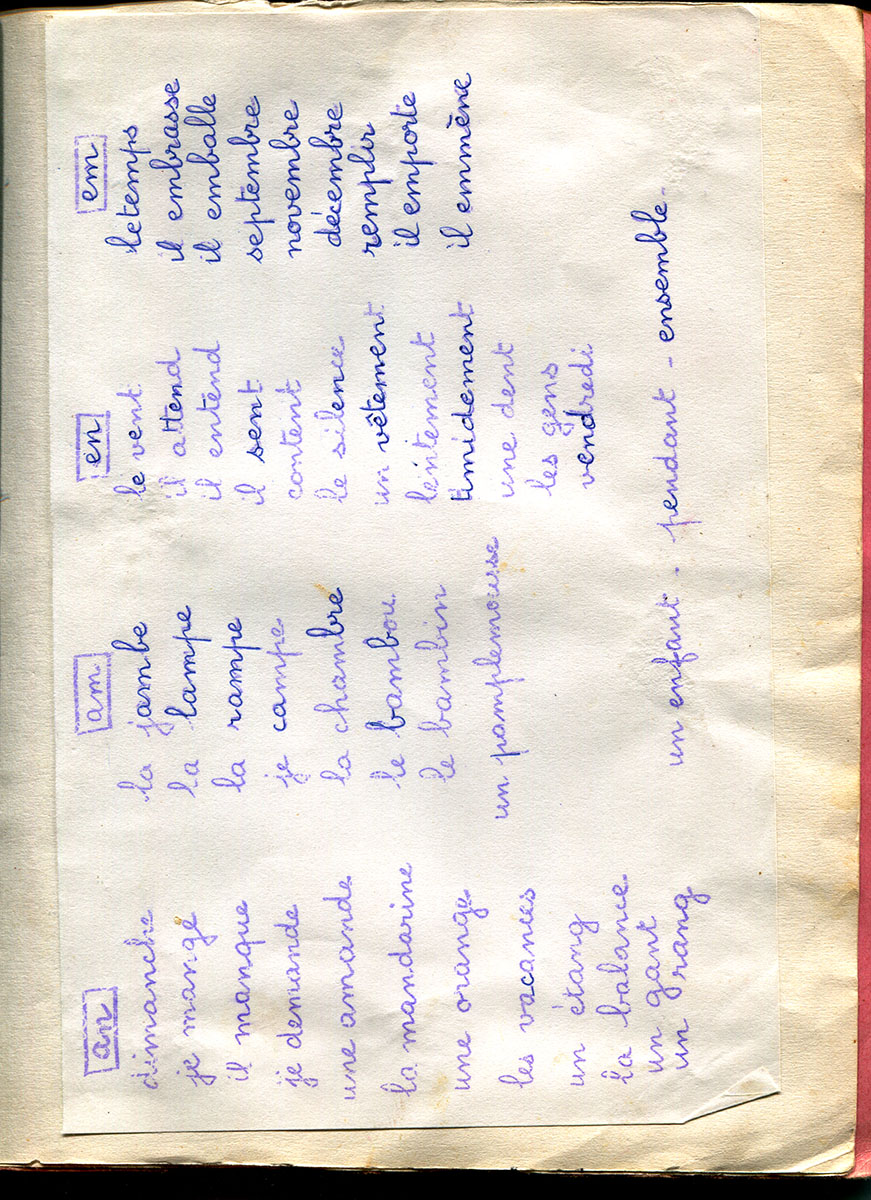 an
dimanche
je mange
il manque
je demande
une amande
la mandarine
une orange
les vacances
un étang
la balance
un gant
un rang
am
la jambe
la lampe
la rampe
je campe
la chambre
le bambou
le bambin
un pamplemousse
en
le vent
il attend
il entend
il sent
content
le silence
un vêtement
lentement
timidement
une dent
les gens
vendredi
em
le temps
il embrasse
il emballe
septembre
novembre
décembre
remplir
il emporte
il emmène
un enfant - pendant - ensemble -